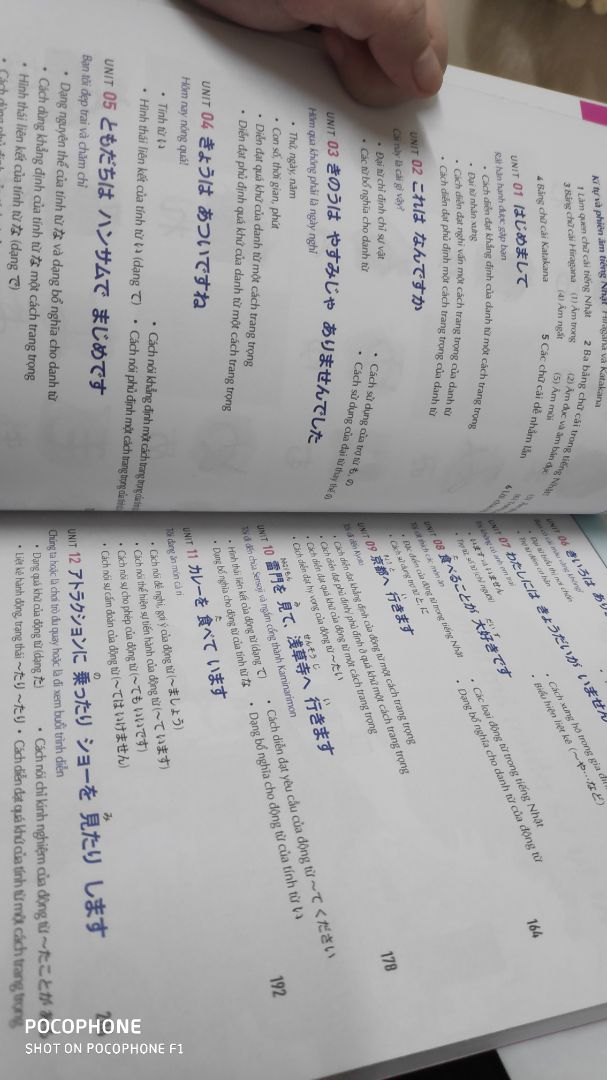 Kí tự và phiên âm tiếng Nhật Hiragana và Katakana
1 Làm quen chữ cái tiếng Nhật 2 Ba bảng chữ cái trong tiếng Nhật
3 Bảng chữ cái Hiragana (1) Âm trong (2) Âm đục và âm bán đục
(4) Âm ngắt (5) Âm mũi
4 Bảng chữ cái Katakana 5 Các chữ cái dễ nhầm lẫn
UNIT 01 はじめまして
Rất hân hạnh được gặp bạn
• Cách diễn đạt khẳng định của danh từ một cách trang trọng
• Đại từ nhân xưng
• Cách diễn đạt nghi vấn một cách trang trọng của danh từ
• Cách diễn đạt phủ định một cách trang trọng của danh từ
UNIT 02 これは なんですか
Cái này là cái gì vậy?
• Đại từ chỉ định chỉ sự vật • Cách sử dụng của trợ từ も, の
• Các từ bổ nghĩa cho danh từ • Cách sử dụng của đại từ thay thế の
UNIT 03 きのうは やすみじゃ ありませんでした
Hôm qua không phải là ngày nghỉ
• Thứ, ngày, năm
• Con số, thời gian, phút
• Diễn đạt quá khứ của danh từ một cách trang trọng
• Diễn đạt phủ định quá khứ của danh từ một cách trang trọng
UNIT 04 きょうは あついですね
Hôm nay nóng quá!
• Tính từ い • Cách nói khẳng định một cách trang trọng của tính từ
• Hình thái liên kết của tính từ い (dạng て) • Cách nói phủ định một cách trang trọng của tính từ
UNIT 05 ともだちは ハンサムで まじめです
Bạn tôi đẹp trai và chăm chỉ
• Dạng nguyên thể của tính từ な và dạng bổ nghĩa cho danh từ
• Cách dùng khẳng định của tính từ な một cách trang trọng
• Hình thái liên kết của tính từ な (dạng で)
UNIT 06 きいろは あり
• Cách xưng hô trong gia đình
Biểu hiện liệt kê (～や…など)
UNIT 07 わたしには きょうだいが いません
164
UNIT 08 食べることが 大好きです
• Các loại động từ trong tiếng Nhật
• Dạng bổ nghĩa cho danh từ của động từ
178
UNIT 09 京都へ 行きます
Tôi đi đến Kyoto
• Cách diễn đạt khẳng định của động từ một cách trang trọng
• Cách diễn đạt phủ định, phủ định ở quá khứ một cách trang trọng
• Cách diễn đạt quá khứ của động từ một cách trang trọng
• Cách diễn đạt hy vọng của động từ ～たい
192
UNIT 10 雷門を 見て、浅草寺へ 行きます
Tôi đi đến chùa Sensoji và ngắm cổng thành Kaminarimon
• Hình thái liên kết của động từ (dạng て) • Cách diễn đạt yêu cầu của động từ ～て ください
• Dạng bổ nghĩa cho động từ của tính từ な • Dạng bổ nghĩa cho động từ của tính từ い
UNIT 11 カレーを 食べて います
Tôi đang ăn món cà ri
• Cách nói đề nghị, gợi ý của động từ (～ましょう)
• Cách nói thể hiện sự tiến hành của động từ (～て います)
• Cách nói sự cho phép của động từ (～ても いいです)
• Cách nói sự cấm đoán của động từ (～ては いけません)
UNIT 12 アトラクションに 乗ったり ショーを 見たり します
Chúng ta hoặc là chơi trò đu quay hoặc là đi xem buổi trình diễn
• Dạng quá khứ của động từ (dạng た) • Cách nói chỉ kinh nghiệm của động từ ～たことが
• Liệt kê hành động, trạng thái ～たり ～たり • Cách diễn đạt quá khứ của tính từ một cách trang trọng
POCOPHONE
SHOT ON POCOPHONE F1